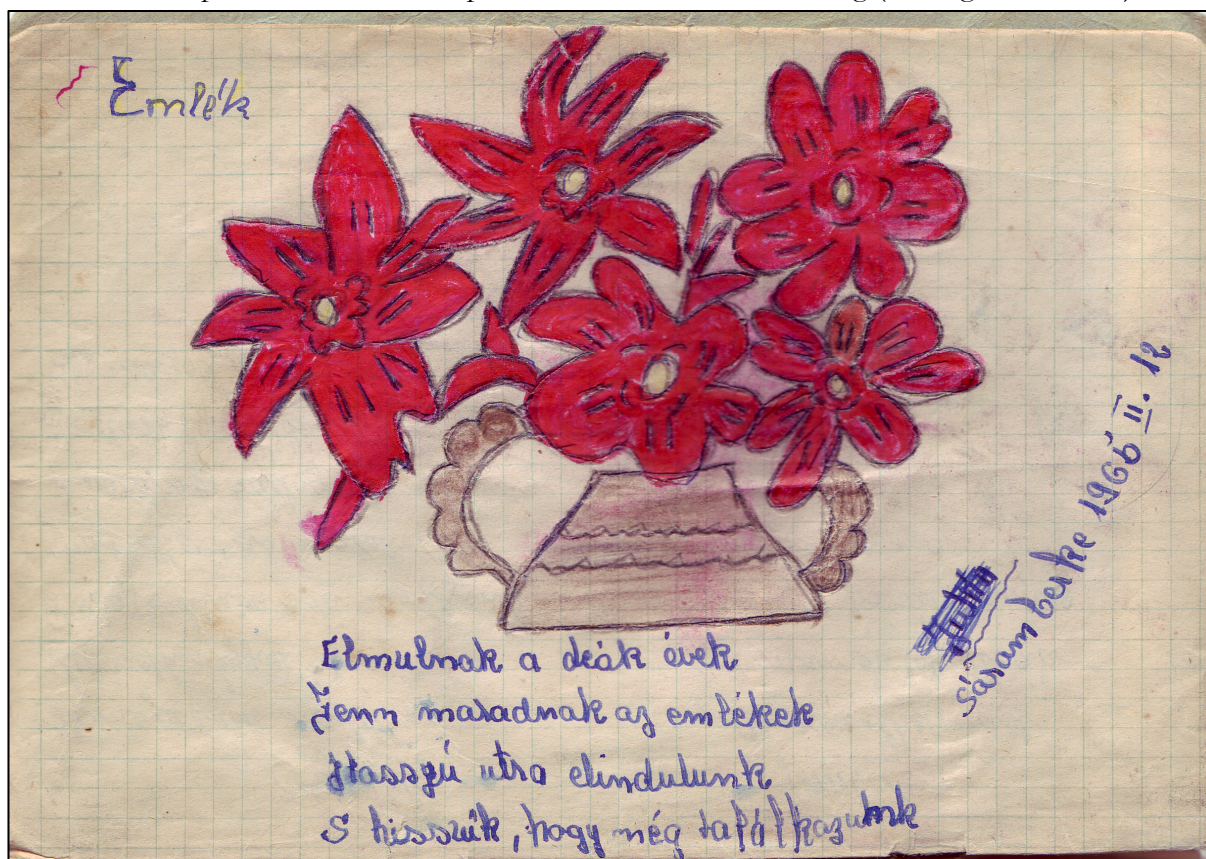 Emlék
Elmulnak a deák évek
Fenn maradnak az emlékek
Hasszú utra elindulunk
S hisszük, hogy még talál kazunk
Sáramberke 1966 II. 12